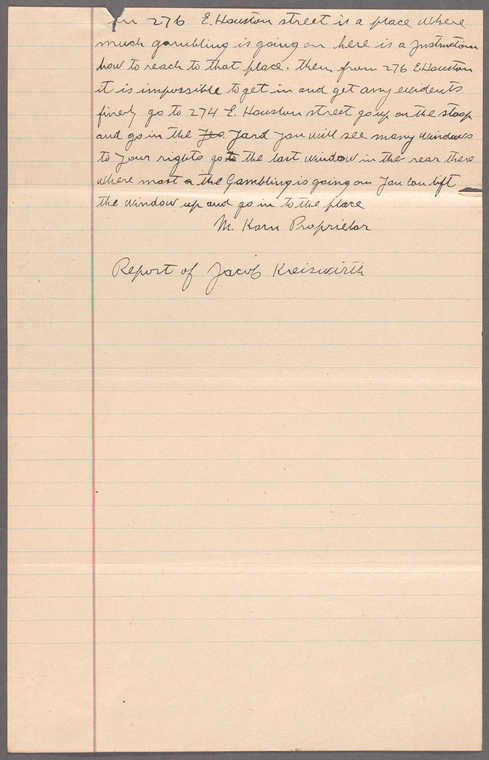 In 276 E. Houston street is a place where
much gambling is going on here is a Instruction
how to reach to that place. then from 276 E Houston
it is impossible to get in and get any evidents
firely go to 274 E. Houston street go up on the stoop
and go in the Yard you will see many windows
to your rights go to the last window in the rear there
where most a the Gambling is going on You can lift
the window up and go in to the place
M. Korn Proprietor
Report of Jacob Kreiswirth